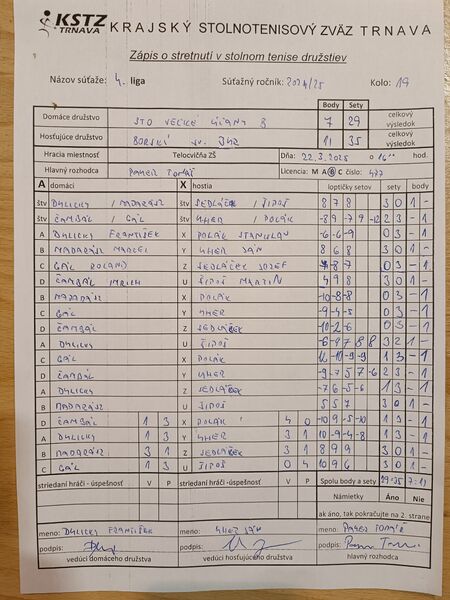 KSTZ TRNAVA KRAJSKÝ STOLNOTENISOVÝ ZVÄZ TRNAVA
Zápis o stretnutí v stolnom tenise družstiev
Názov súťaže: 4. liga Súťažný ročník: 2024/25 Kolo: 19
Body Sety
Domáce družstvo STO VEĽKÉ ÚĽANY B 7 29 celkový výsledok
Hosťujúce družstvo BORSKÝ SV. JUR 11 35 celkový výsledok
Hracia miestnosť Telocvičňa ZŠ Dňa: 22.3.2025 o 16°° hod.
Hlavný rozhodca TOMÁŠ Licencia: M A B C číslo: 437
A domáci X hostia loptičky setov sety body
štv DHLICKY / MADARÁSZ štv SEDLÁČEK / ŠIPOŠ 8 7 8 3 0 1 -
štv ČAMBÁL / GÁL štv UHER / POLÁK -8 9 -7 9 -12 2 3 - 1
A DHLICKY FRANTIŠEK X POLÁK STANISLAV -6 -6 -9 0 3 - 1
B MADARÁSZ MARCEL Y UHER JÁN 8 6 8 3 0 1 -
C GÁL ROLAND Z SEDLÁČEK JOZEF -8 -7 0 3 - 1
D ČAMBÁL IMRICH U ŠIPOŠ MARTIN 4 9 8 3 0 1 -
B MADARÁSZ X POLÁK -10 -8 -8 0 3 - 1
C GÁL Y UHER -9 -4 -5 0 3 - 1
D ČAMBÁL Z SEDLÁČEK -10 -2 -6 0 3 - 1
A DHLICKY U ŠIPOŠ -6 -9 7 8 8 3 2 1 -
C GÁL X POLÁK 11 -10 -9 -9 1 3 - 1
D ČAMBÁL Y UHER -9 -7 5 7 -6 2 3 - 1
A DHLICKY Z SEDLÁČEK -7 6 -5 -6 1 3 - 1
B MADARÁSZ U ŠIPOŠ 5 5 7 3 0 1 -
D ČAMBÁL 1 3 X POLÁK 4 0 -10 9 -5 -10 1 3 - 1
A DHLICKY 1 3 Y UHER 3 1 10 -9 -4 -8 1 3 - 1
B MADARÁSZ 3 1 Z SEDLÁČEK 3 1 8 9 9 3 0 1 -
C GÁL 1 3 U ŠIPOŠ 0 4 10 9 6 3 0 1 -
striedaní hráči - úspešnosť V P striedaní hráči - úspešnosť V P Spolu body a sety 29:35 7:11
Námietky Áno Nie
ak áno, tak pokračujte na 2. strane
meno: DHLICKY FRANTIŠEK meno: UHER JÁN meno: TOMÁŠ
podpis: podpis: podpis:
vedúci domáceho družstva vedúci hosťujúceho družstva hlavný rozhodca